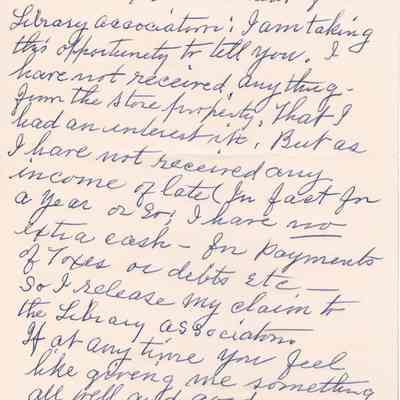 Library association; I am taking
this opportunity to tell you. I
have not received anything -
from the store property. That I
had an interest in. But as
I have not received any
income of late (In fact for
a year or so; I have no
extra cash - for payments
of Taxes or debts etc -
So I release my claim to
the Library association.
If at any time you feel
like giving me something
all well and good